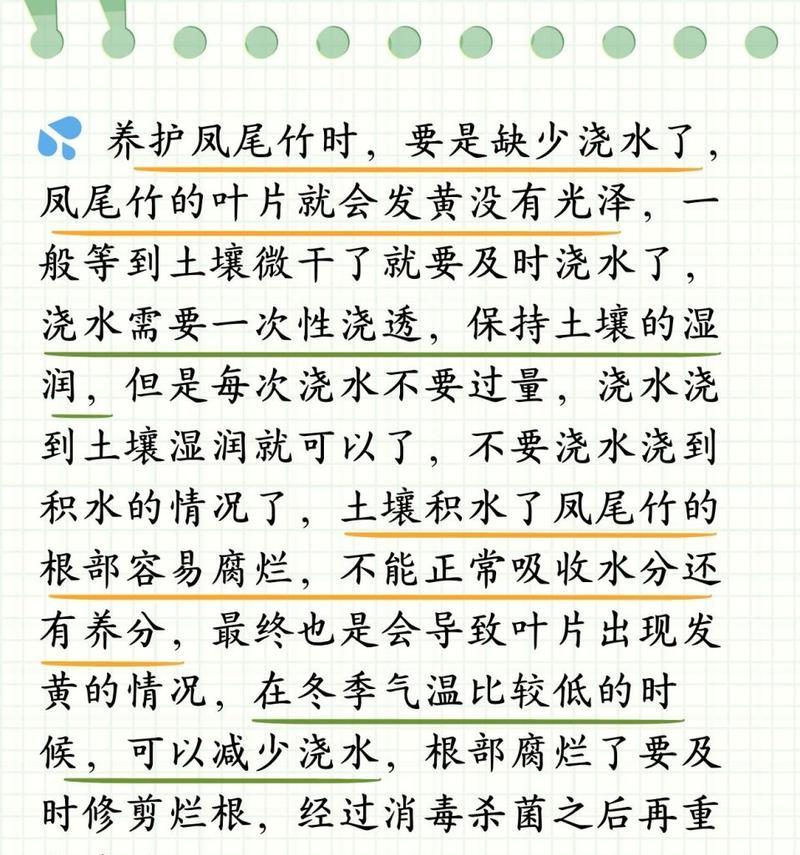 养护凤尾竹时，要是缺少浇水了，
凤尾竹的叶片就会发黄没有光泽，一
般等到土壤微干了就要及时浇水了，
浇水需要一次性浇透，保持土壤的湿
润，但是每次浇水不要过量，浇水浇
到土壤湿润就可以了，不要浇水浇到
积水的情况了，土壤积水了凤尾竹的
根部容易腐烂，不能正常吸收水分还
有养分，最终也是会导致叶片出现发
黄的情况，在冬季气温比较低的时
候，可以减少浇水，根部腐烂了要及
时修剪烂根，经过消毒杀菌之后再重